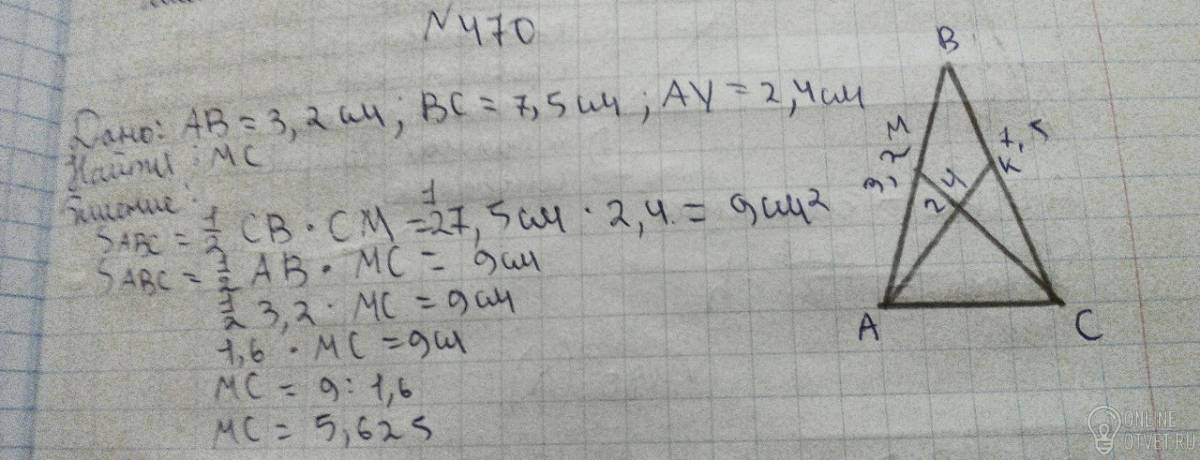 N 470
Дано: AB = 3,2 см; BC = 7,5 см; AV = 2,4 см
Найти: MC
Решение:
S ABC = 1/2 CB · CM = 1/2 7,5 см · 2,4 = 9 см²
S ABC = 1/2 AB · MC = 9 см
1/2 3,2 · MC = 9 см
1,6 · MC = 9 см
MC = 9 : 1,6
MC = 5,625
B
M
3,2
7,5
K
2,4
A
C
ONLINE
OTVET.RU